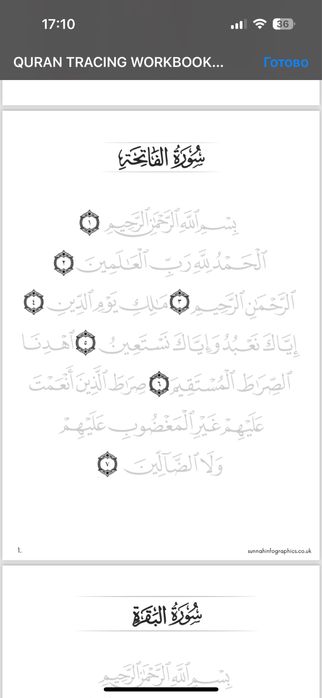 17:10
36
QURAN TRACING WORKBOOK...
Готово
سُورَةُ الفَاتِحَةِ
بِسْمِ ٱللَّهِ ٱلرَّحْمَٰنِ ٱلرَّحِيمِ ١
ٱلْحَمْدُ لِلَّهِ رَبِّ ٱلْعَالَمِينَ ٢
ٱلرَّحْمَٰنِ ٱلرَّحِيمِ ٣ مَالِكِ يَوْمِ ٱلدِّينِ ٤
إِيَّاكَ نَعْبُدُ وَإِيَّاكَ نَسْتَعِينُ ٥ ٱهْدِنَا
ٱلصِّرَاطَ ٱلْمُسْتَقِيمَ ٦ صِرَاطَ ٱلَّذِينَ أَنْعَمْتَ
عَلَيْهِمْ غَيْرِ ٱلْمَغْضُوبِ عَلَيْهِمْ
وَلَا ٱلضَّالِّينَ ٧
1.
sunnahinfographics.co.uk
سُورَةُ البَقَرَةِ
بِسْمِ ٱللَّهِ ٱلرَّحْمَٰنِ ٱلرَّحِيمِ